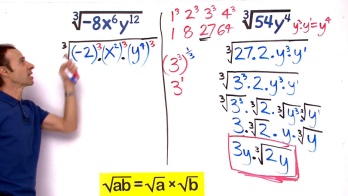 ∛-8x⁶y¹²
∛(-2)³·(x²)³·(y⁴)³
1³ 2³ 3³ 4³
1 8 27 64
(3³)^⅓
3¹
∛54y⁴ y³·y¹=y⁴
∛27·2·y³·y¹
∛3³·2·y³·y¹
∛3³·∛2·∛y³·∛y¹
3·∛2·y·∛y
3y·∛2y
√ab = √a × √b